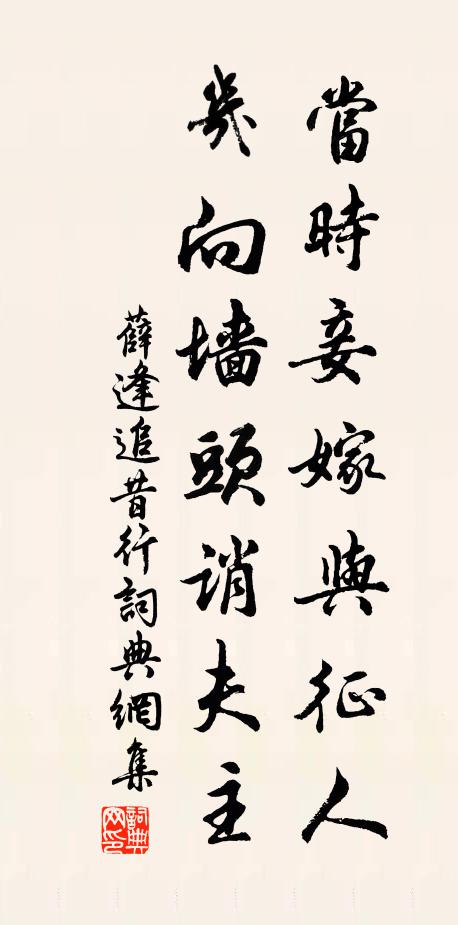 當時妾嫁與征人
幾向墙頭誚夫主
薛逢追昔行詞典網集
詞典网印